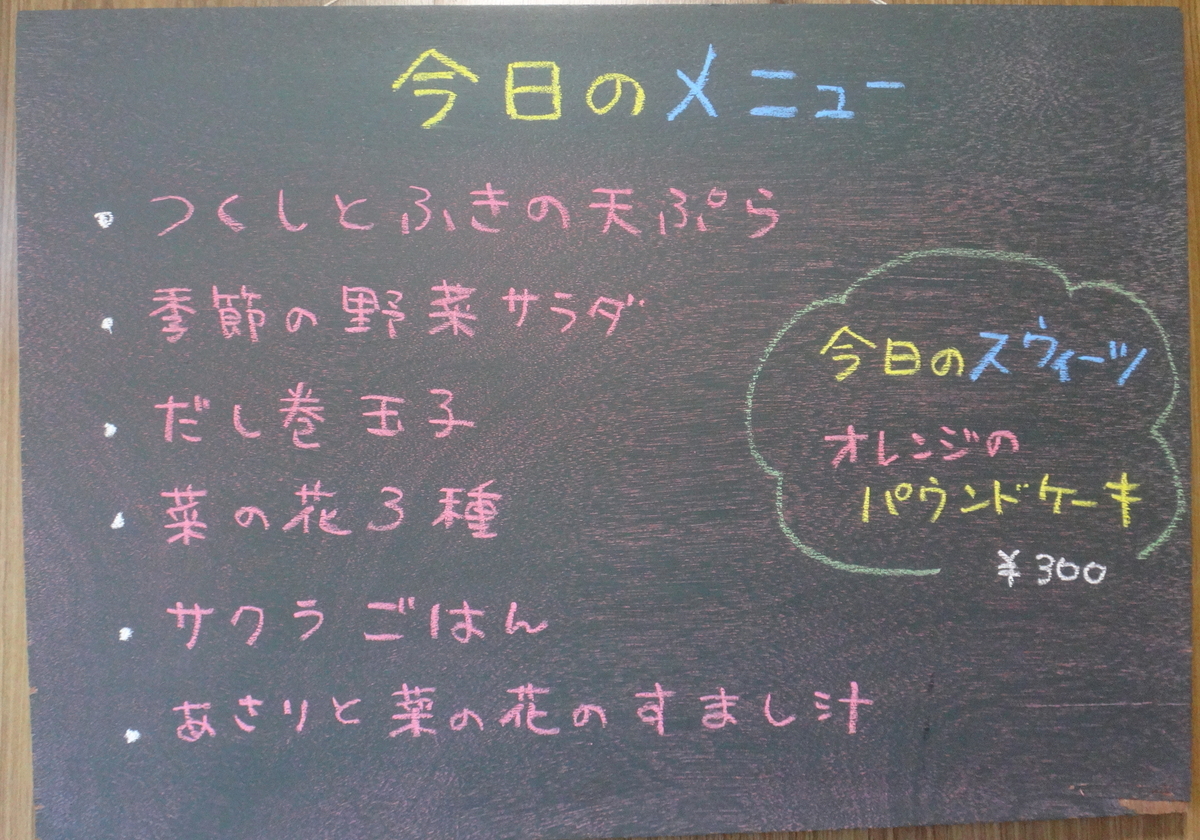 今日のメニュー
・つくしとふきの天ぷら
・季節の野菜サラダ
・だし巻玉子
・菜の花3種
・サクラごはん
・あさりと菜の花のすまし汁
今日のスウィーツ
オレンジの
パウンドケーキ
¥300